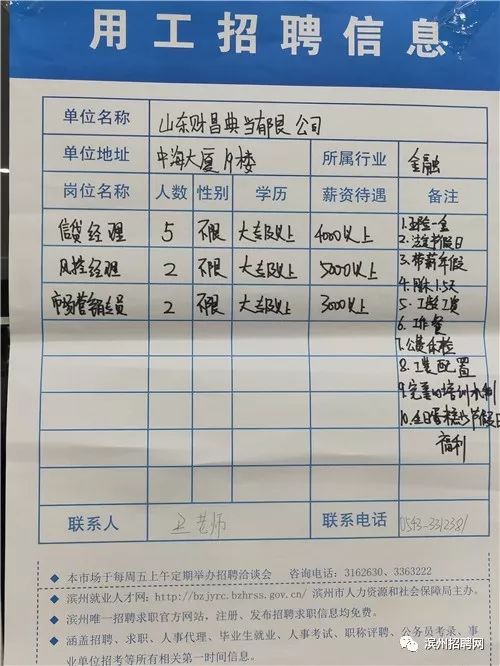 用工招聘信息
单位名称 山东财昌典当有限公司
单位地址 中海大厦19楼 所属行业 金融
岗位名称 人数 性别 学历 薪资待遇 备注
信贷经理 5 不限 大专及以上 4000以上
风控经理 2 不限 大专及以上 5000以上
市场营销专员 2 不限 大专及以上 3000以上
1.五险一金
2.法定节假日
3.带薪年假
4.周休1.5天
5.工龄工资
6.工作餐
7.公费体检
8.工装配置
9.完善的培训机制
10.生日蛋糕与节假日
福利
联系人 老师 联系电话 0543-3312381
◆ 本市场于每周五上午定期举办招聘洽谈会 咨询电话：3162630、3363222
◆ 滨州就业人才网：http://bzjyrc.bzhrss.gov.cn/ 滨州市人力资源和社会保障局主办。
◆ 滨州唯一招聘求职官方网站，注册、发布招聘求职信息均免费。
◆ 涵盖招聘、求职、人事代理、毕业生就业、人事考试、职称评聘、公务员考录、事
业单位招考等所有相关第一时间信息。
滨州招聘网